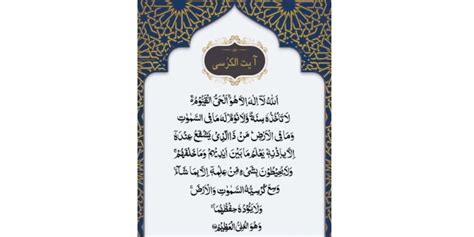 آیت الکرسی
اَللهُ لَآ اِلٰهَ اِلَّا هُوَ اَلْحَیُّ الْقَیُّوْمُ
لَا تَاْخُذُهٗ سِنَةٌ وَّلَا نَوْمٌ لَهٗ مَا فِی السَّمٰوٰتِ
وَمَا فِی الْاَرْضِ مَنْ ذَا الَّذِیْ یَشْفَعُ عِنْدَهٗٓ
اِلَّا بِاِذْنِهٖ یَعْلَمُ مَا بَیْنَ اَیْدِیْهِمْ وَمَا خَلْفَهُمْ
وَلَا یُحِیْطُوْنَ بِشَیْءٍ مِّنْ عِلْمِهٖٓ اِلَّا بِمَا شَآءَ
وَسِعَ كُرْسِیُّهُ السَّمٰوٰتِ وَالْاَرْضَ
وَلَا یَـُٔوْدُهٗ حِفْظُهُمَا
وَهُوَ الْعَلِیُّ الْعَظِیْمُ